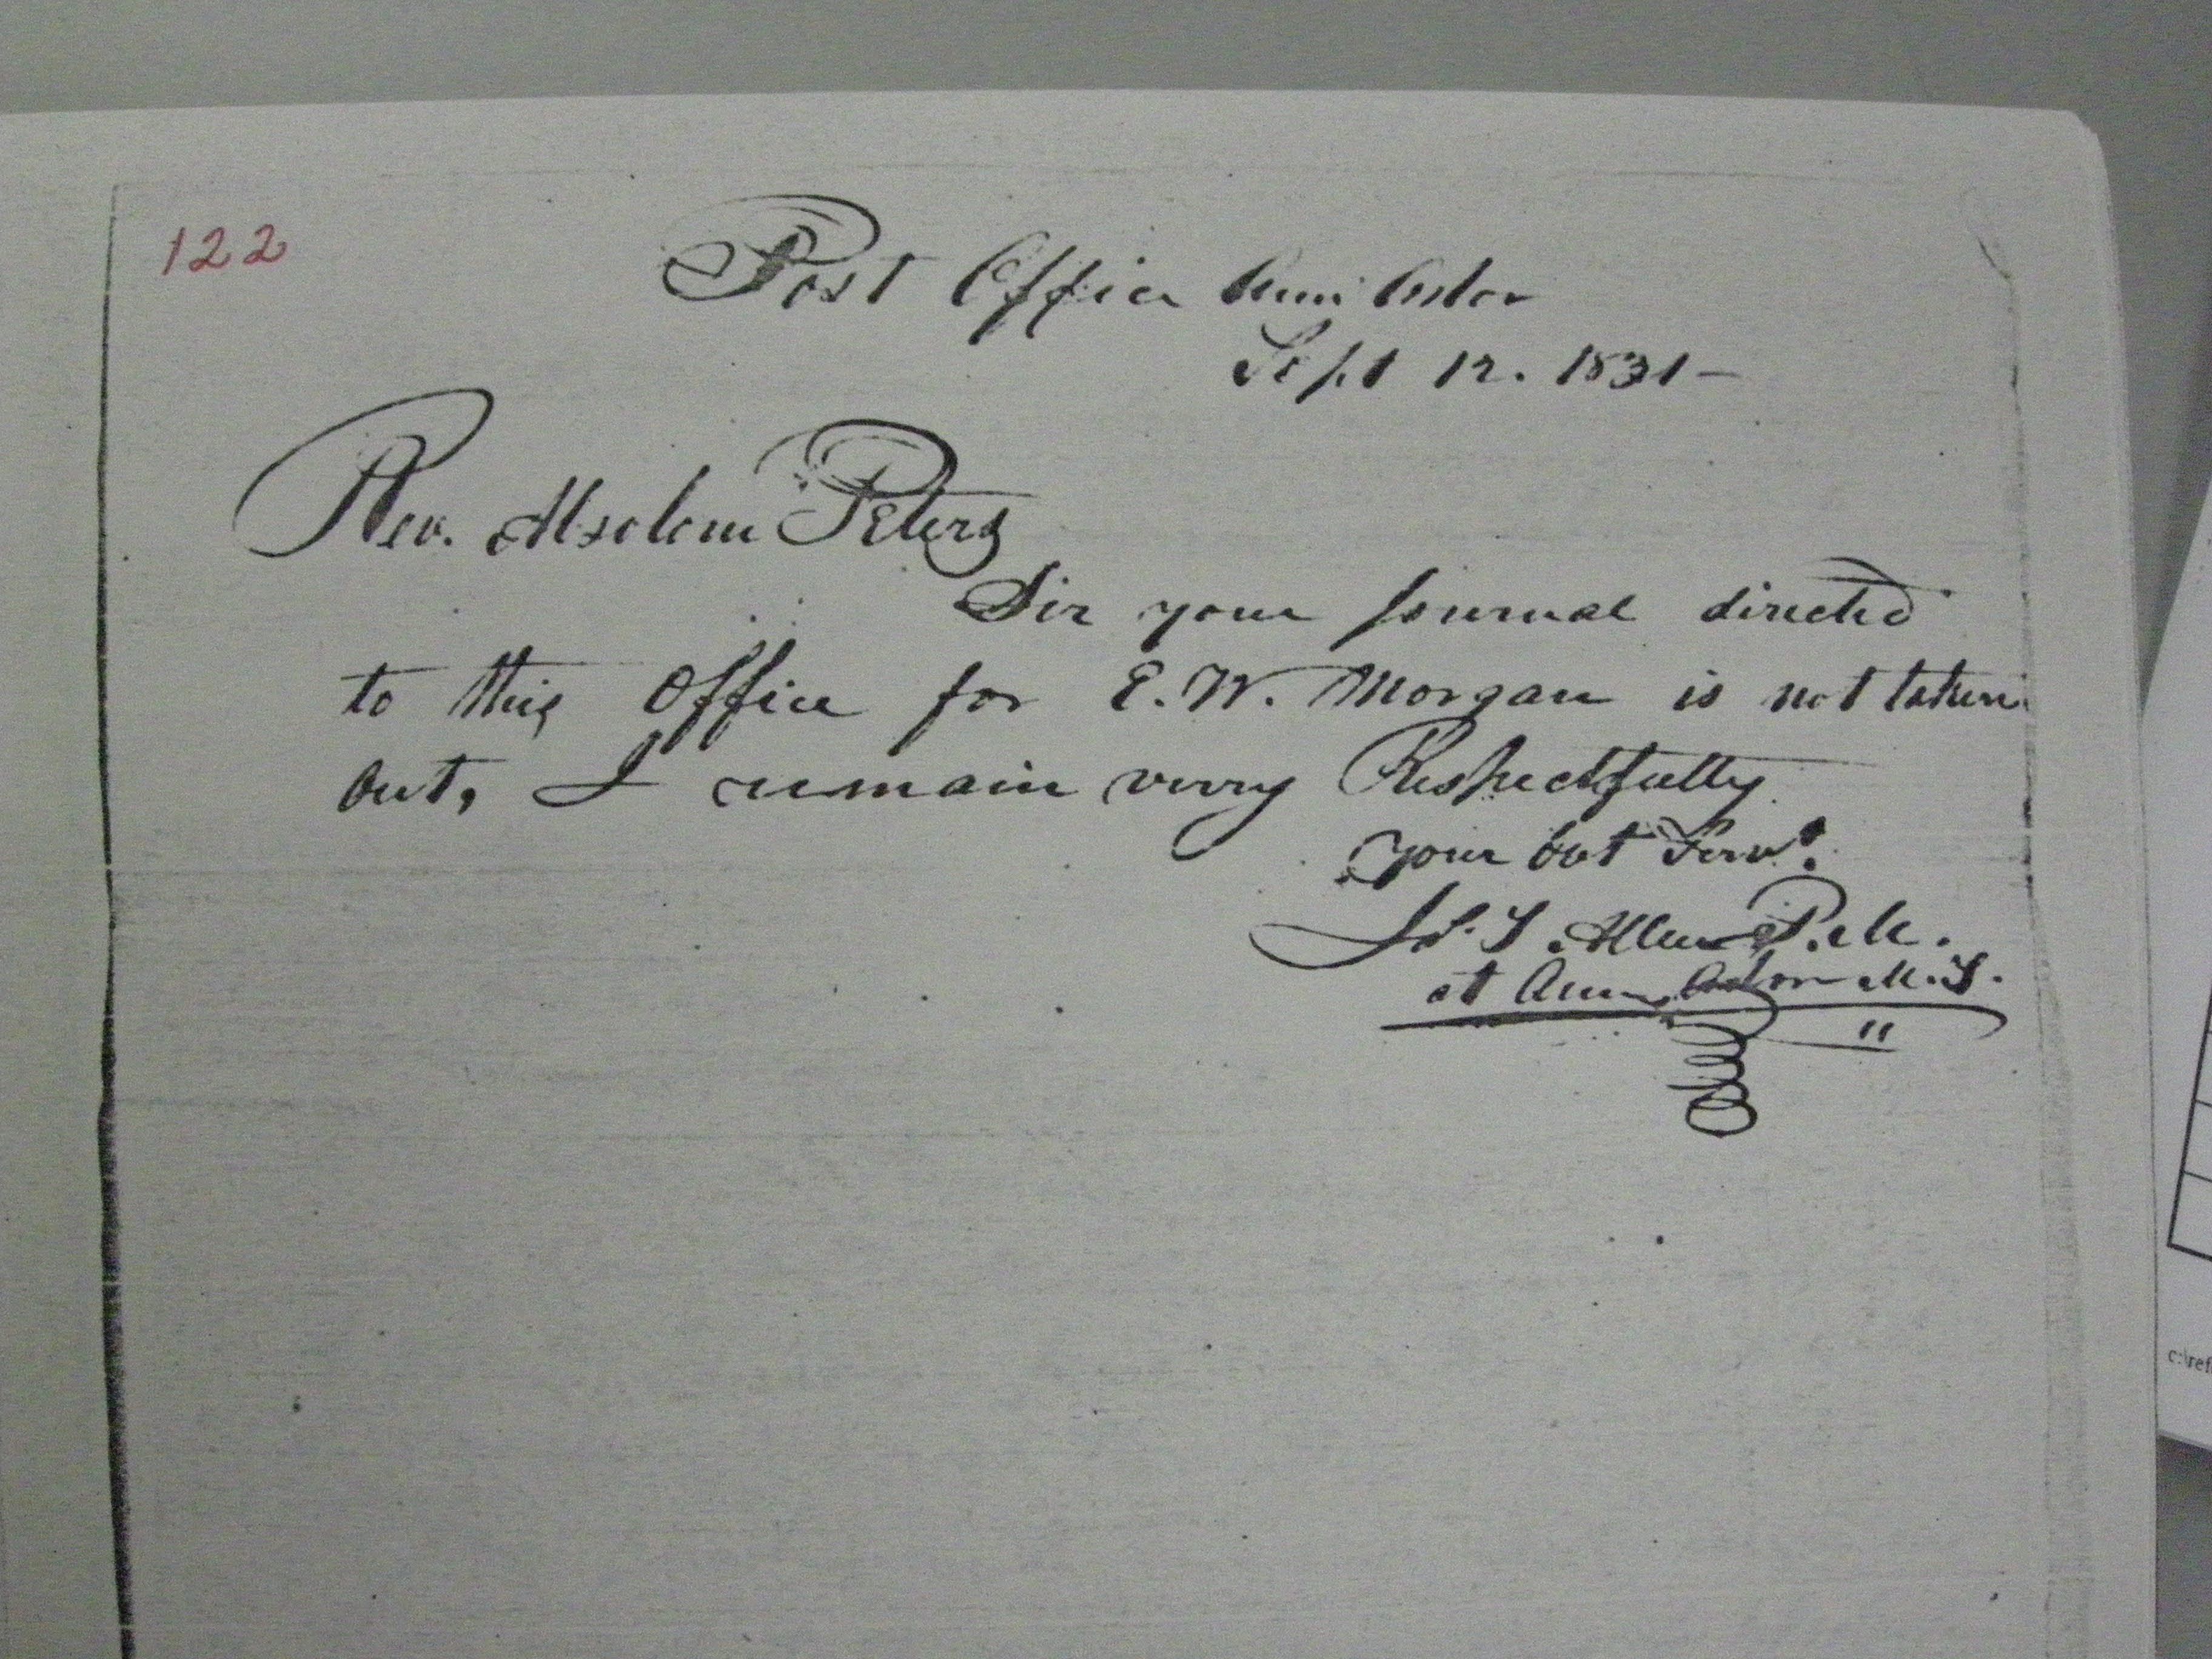 122
Post Office Ann Arbor
Sept 12. 1831-
Rev. Absolom Peters
Sir your Journal directed
to this Office for E. W. Morgan is not taken
out, I remain verry Respectfully
your obt Servt.
Allen P. M.
at Ann Arbor M. T.
"
c:\ref